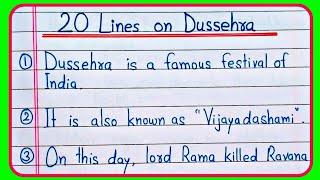 20 Lines on Dussehra
① Dussehra is a famous festival of
India.
② It is also known as "Vijayadashami".
③ On this day, lord Rama killed Ravana